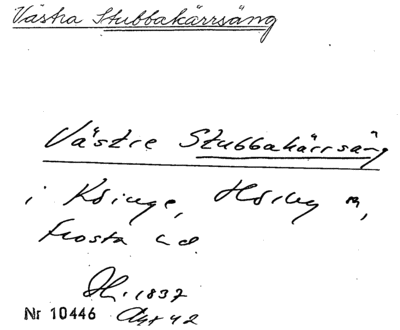 Västra Stubbakärrsäng
Västre Stubbakärrsäng
i Köinge, Hörby sn,
Frosta hd
1837
Nr 10446 Akt 42